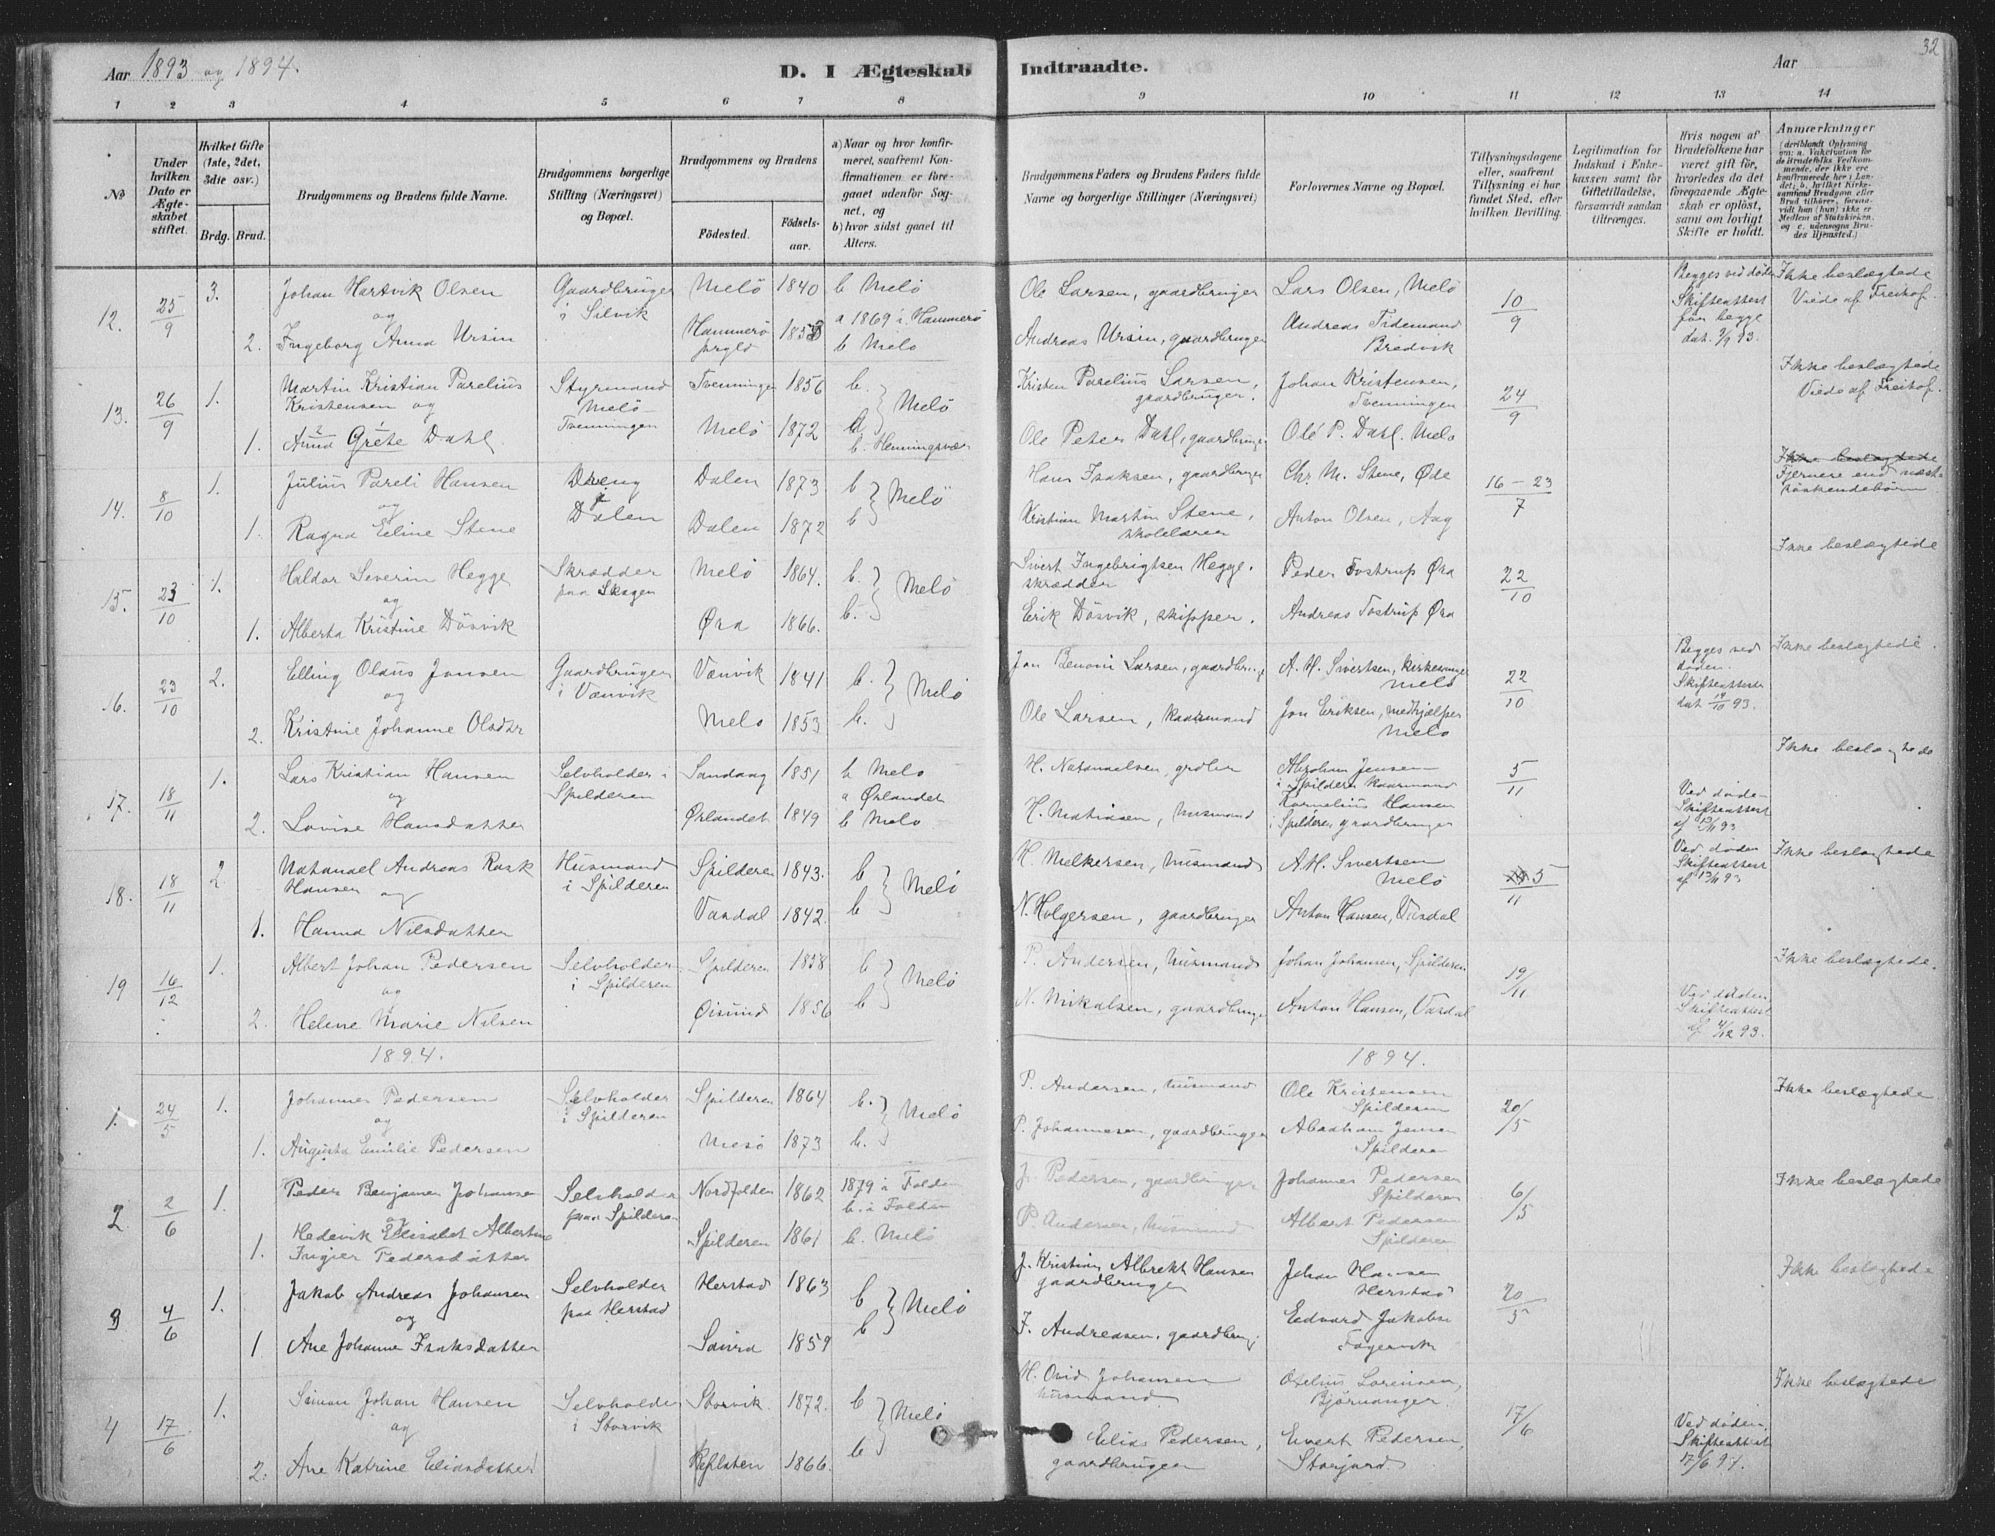 Aar 1893 og 1894.
D. I Ægteskab Indtraadte.
Aar
32
1 2 3 4 5 6 7 8 9 10 11 12 13 14
No
Under hvilken Dato er Ægteskabet stiftet.
Hvilket Gifte (1ste, 2det, 3die osv.)
Brdg. Brud.
Brudgommens og Brudens fulde Navne.
Brudgommens borgerlige Stilling (Næringsvei) og Bopæl.
Brudgommens og Brudens
Födested. Födselsaar.
a) Naar og hvor konfirmeret, saafremt Konfirmationen er foregaaet udenfor Sognet, og
b) hvor sidst gaaet til Alters.
Brudgommens Faders og Brudens Faders fulde Navne og borgerlige Stillinger (Næringsvei)
Forlovernes Navne og Bopæl.
Tillysningsdagene eller, saafremt Tillysning ei har fundet Sted, efter hvilken Bevilling.
Legitimation for Indskud i Enkekassen samt for Giftetilladelse, forsaavidt saadan tiltrænges.
Hvis nogen af Brudefolkene har været gift för, hvorledes da det foregaaende Ægteskab er oplöst, samt om lovligt Skifte er holdt.
Anmærkninger
12. 25/9 3. Johan Hartvik Olsen Gaardbruger i Selvik Melö 1840 b Melö Ole Larsen, gaardbruger Lars Olsen, Melö 10/9 Begges ved döden Skifteattest for begge dat. 2/9 93. Ikke beslægtede Viede af Freihof.
og
2. Ingeborg Anna Ursin Hammerö prgld a 1869 i Hammerö b Melö Andreas Ursin, gaardbruger Andreas Tidemand Bredvik
13. 26/9 1. Martin Kristian Parelius Kristensen og Styrmand Melö- Tvenningen Tvenningen 1856 b. Melö Kristen Parelius Larsen, gaardbruger. Johan Kristensen, Tvenningen 24/9 Ikke beslægtede Viede af Freihof.
1. Anna Grete Dahl Melö 1872 b. Henningsvær Ole Peter Dahl, gaardbruger Ole P. Dahl, Melö
14. 8/10 1. Julius Pareli Hansen Dreng Dalen Dalen 1873 b Melö Hans Isaksen, gaardbruger Chr. M. Stene, Øde 16-23/7 Ikke beslægtede Fjernere end næst- söskendebörn
og
1. Ragna Eline Stene Dalen 1872 b Kristian Martin Stene, skolelærer Anton Olsen, Aag
15. 23/10 1. Haldor Severin Hegge Skrædder paa Skogen Melö 1864. b. Melö Sivert Ingebrigtsen Hegge, skrædder Peder Tostrup Øra 22/10 Ikke beslægtede
og
1. Alberta Kristine Dösvik Øra 1866. b. Erik Dösvik, skipper. Andreas Tostrup Øra
16. 23/10 2. Elling Olaus Jonsen Gaardbruger i Vænvik Vænvik 1841 b. Melö Jon Benoni Larsen, gaardbruger A. H. Sivertsen, kirkesanger Melö 22/10 Begges ved döden. Skifteattester dat 14/10 93. Ikke beslægtede.
og
2. Kristine Johanne Olsdtr Melö 1853 b. Ole Larsen, kaarmand Jon Eriksen, medhjælper Melö
17. 18/11 1. Lars Kristian Hansen Selvholder i Spilderen Sandaag 1851 b Melö H. Natanaelsen, Abraham Jensen i Spilderen kaarmand 5/11 Ikke beslægtede
og
2. Lovise Hansdatter Ørlandet 1849 a Ørlandet b Melö H. Matiasen, husmand Kornelius Hansen i Spilderen gaardbruger Ved döde- Skifteattest af 13/11 93
18. 18/11 2. Natanael Andreas Rask Hansen og Husmand i Spilderen Spilderen 1843. b Melö H. Melkersen, husmand A. H. Sivertsen Melö 5/11 Ved döden Skifteattest af 13/11 93 Ikke beslægtede
1. Hanna Nilsdatter Vasdal 1842. b N. Holgersen, gaardbruger Anton Hansen, Vasdal
19 16/12 1. Albert Johan Pedersen Selvholder i Spilderen Spilderen 1858 b Melö P. Andersen, husmand Johan Johansen, Spilderen 19/11 Ikke beslægtede.
og
2. Helene Marie Nilsen Øisund 1856 b N. Mikalsen, gaardbruger Anton Hansen, Vasdal Ved döden, Skifteattest af 4/12 93.
1894. 1894.
1. 24/5 1. Johannes Pedersen Selvholder i Spilderen Spilderen 1864 b. Melö P. Andersen, husmand Ole Kristensen Spilderen 20/5 Ikke beslægtede
og
1. Augusta Emilie Pedersen Mesö 1873 b. P. Johannesen, gaardbruger Abraham Jensen Spilderen
2 2/6 1. Peder Benjamin Johansen Selvholder paa Spilderen Nordfolden 1862 1879 i Folden b. i Folden J. Pedersen, gaardbruger Johannes Pedersen Spilderen 6/5 Ikke beslægtede
og
1. Hedevik Elisabet Albertine Ingier Pedersdatter Spilderen 1861 b. Melö P. Andersen, husmand Albert Pedersen Spilderen
3 4/6 1. Jakob Andreas Johansen Selvholder paa Herstad Herstad 1863 b Melö J. Kristian Albrekt Hansen gaardbruger Johan Hansen Herstad 20/5 Ikke beslægtede
og
1 Ane Johanne Isaksdatter 1859 b I. Andreasen, gaardbrug. Edvard Jakobsen Fagervik
4 17/6 1. Simon Johan Hansen Selvholder i Storvik Storvik 1872. b Melö H. Ovid Johansen husmand Otelius Lorensen, Björnanger. 17/6 Ikke beslægtede
og
2. Ane Katrine Eliasdatter 1866. b Elias Pedersen, gaardbruger Evert Pedersen, Storjord. Ved döden, Skifteattest 17/6 94.